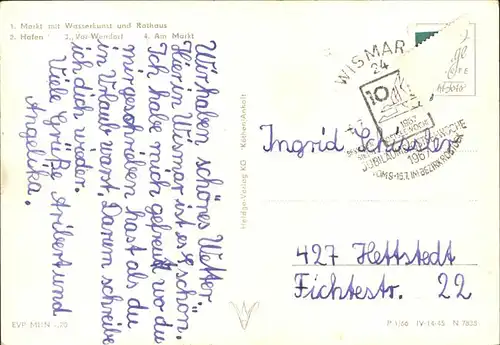 1. Markt mit Wasserkunst und Rathaus
2. Hafen 3. Vor Wendorf 4. Am Markt
Wir haben schönes Wetter.
Hier in Wismar ist es schön.
Ich habe mich gefreut wo du
mir geschrieben hast als du
in Urlaub warst. Darum schreibe
ich dich wieder.
Viele Grüße Aribert und
Angelika.
Heldge-Verlag KG Köthen/Anhalt
WISMAR
24
10
1967
JUBILÄUMS
OSTSEEWOCHE
1967
VOM 9.-16.7. IM BEZIRK ROSTOCK
Ingrid Schissler
427 Hettstedt
Fichtestr. 22
EVP MDN -,20
P 1/66 IV-14-45 N 7635